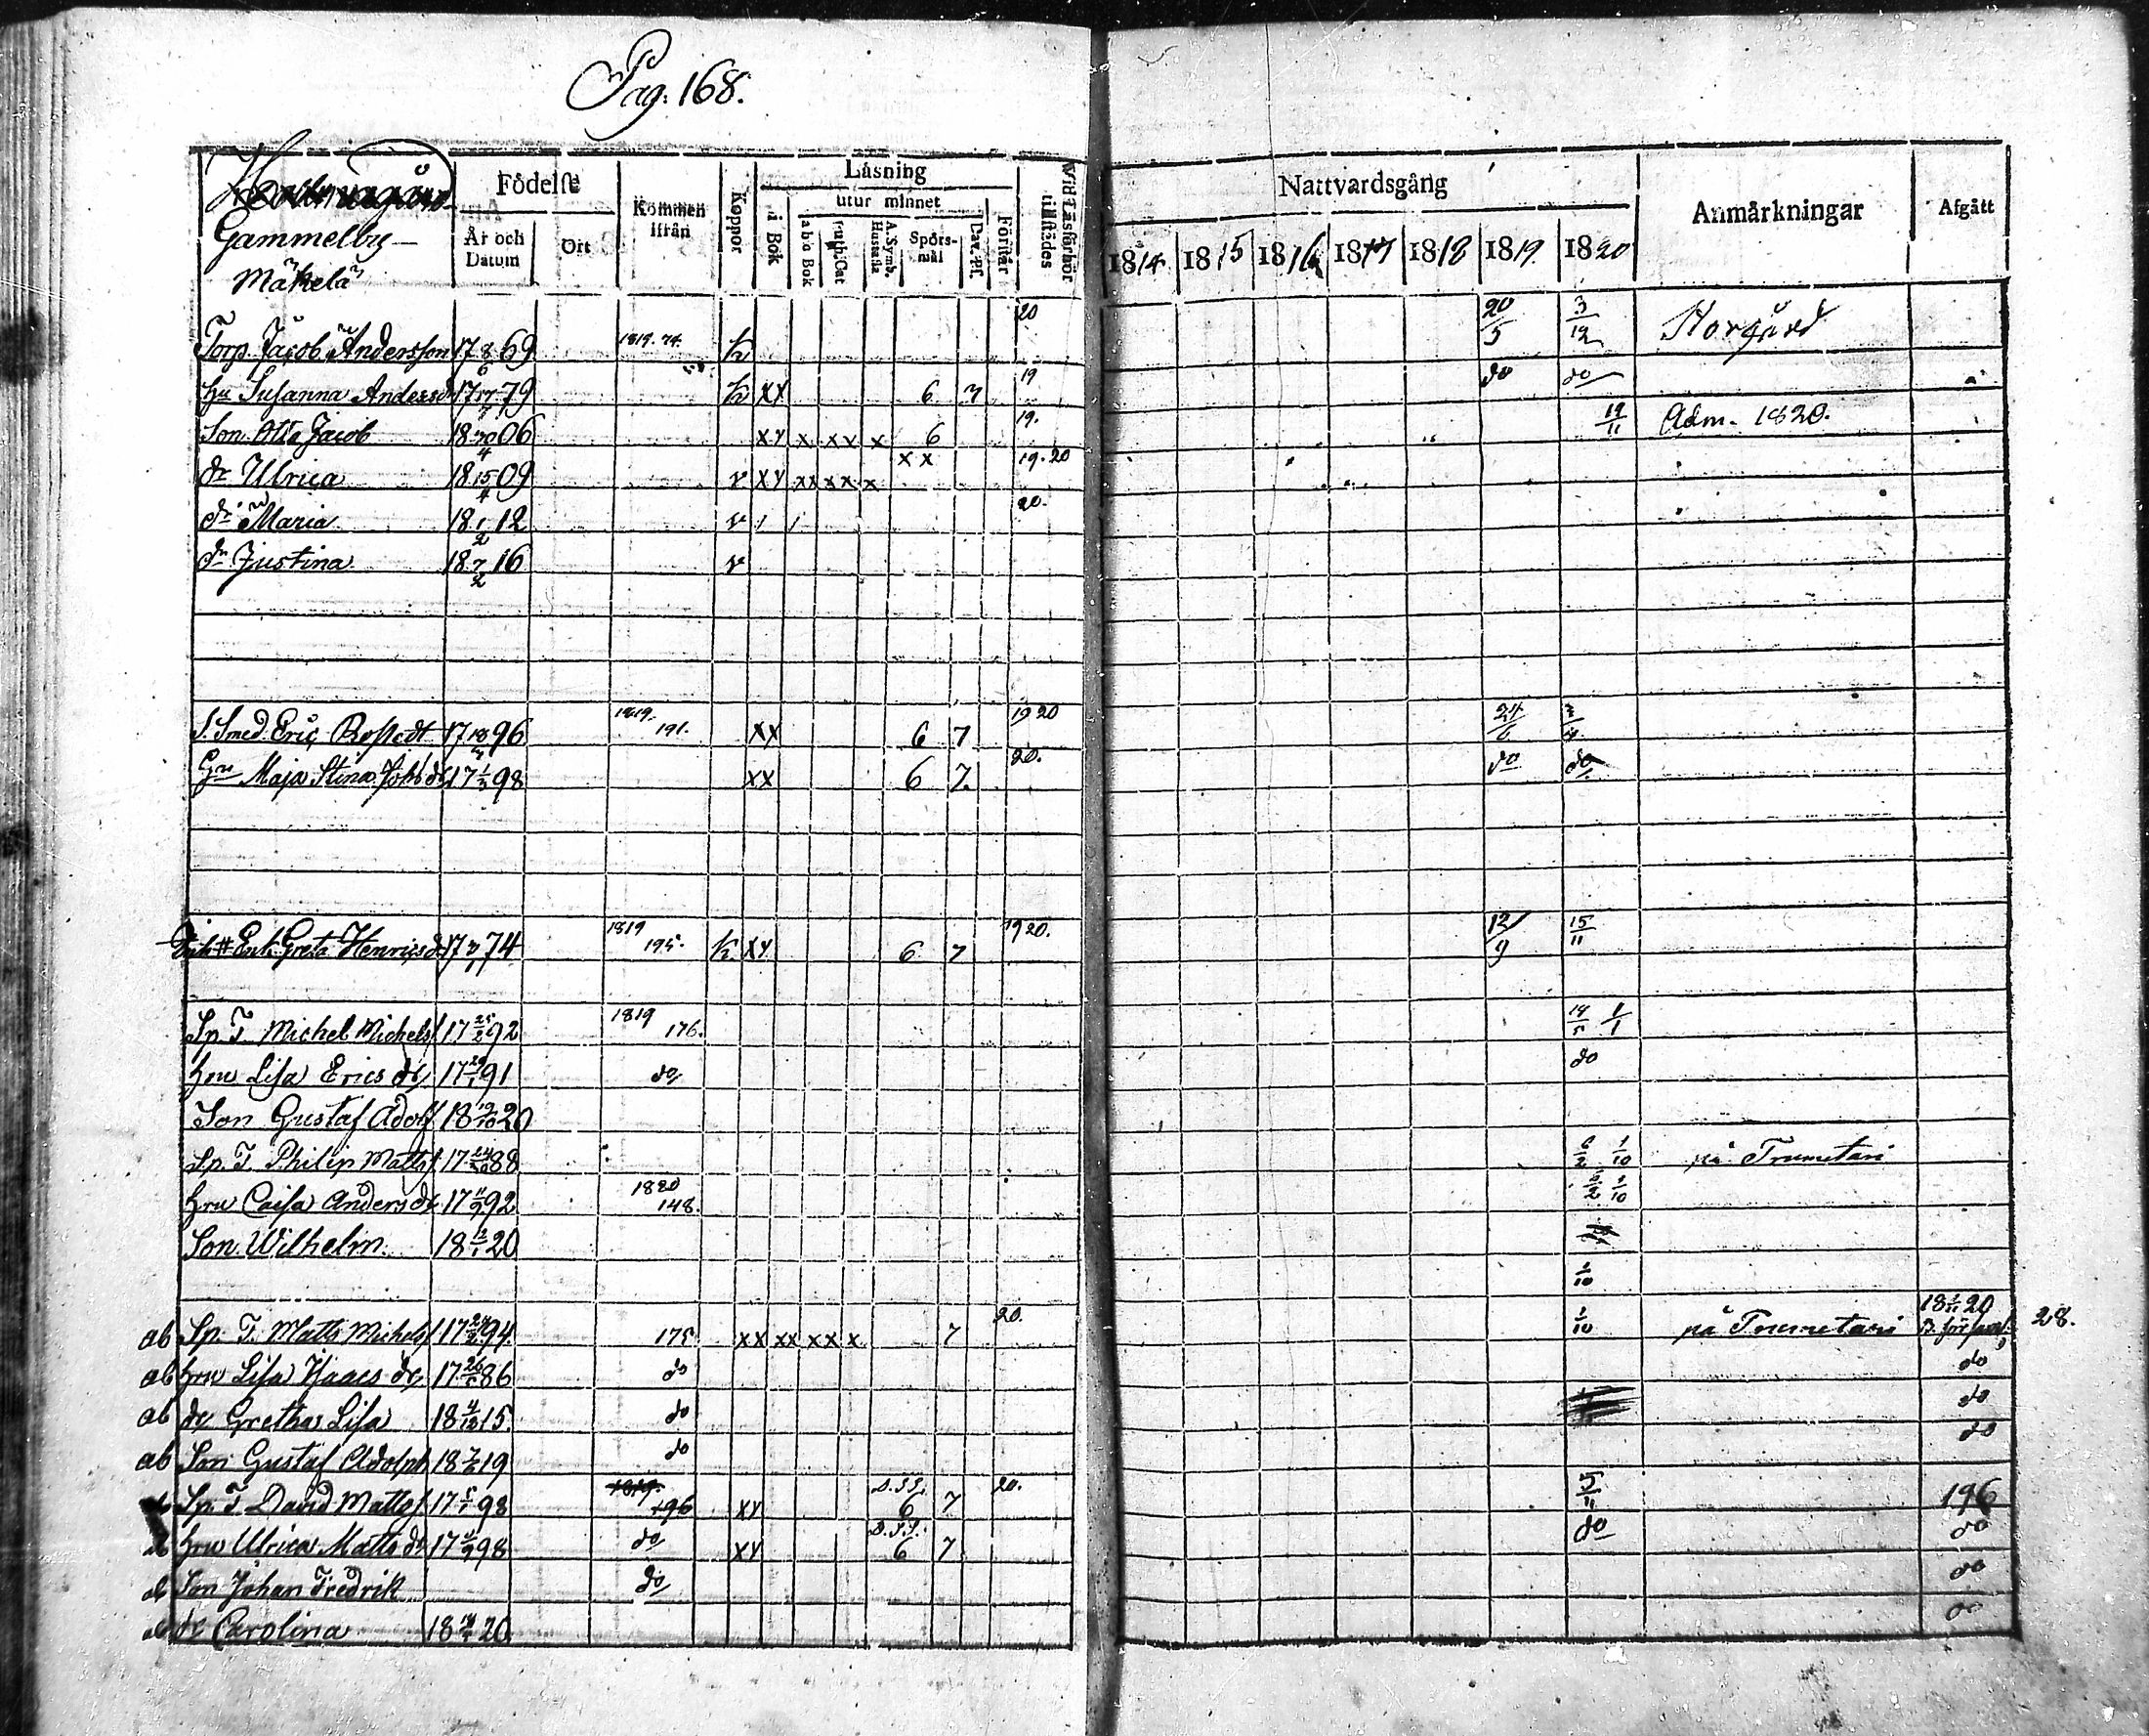 Pag: 168.
Gammelby
Mäkelä
Födelse
År och Datum
Ort
Kommen ifrån
Koppor
Läsning
utur minnet
i Bok
a b c Bok
Luth: Cat
A. Symb. Hustafla
Spörsmål
Dav. Ps.
Förstår
Wid Läsförhör tillstädes
Nattvardsgång
1814 1815 1816 1817 1818 1819 1820
Anmärkningar
Afgått
Torp. Jacob Andersson 17 8/6 69 1819. 74. k 20 20/5 3/12 Storgård
hu Susanna Andersd 17 17/7 79 k xx 6 7 19 do do
Son Otto Jacob 18 20/4 06 xx x xx x 6 19. 19/11 Adm. 1820.
dr Ulrica 18 15/4 09 v xx xx xx x xx 19.20
dr Maria 18 1/2 12 v / / 20.
dr Justina 18 7/2 16 v
S. Smed Eric Rostedt 17 18/3 96 1819. 191. xx 6 7 19 20 24/6 2/4
Maja Stina Johs dr 17 1/3 98 xx 6 7. 20. do do
Enk. Greta Henrics d 17 74 1819 195. k xx 6 7 19 20. 12/9 15/11
Sp. T. Michel Michels 17 25/2 92 1819 176. 14/5 1/1
hru Lisa Erics dr 17 91 do do
Son Gustaf Adolf 18 19/10 20
Sp. T. Philip Matts 17 24/10 88 6/2 1/10 på Trumetari
hru Caisa Anders dr 17 11/9 92 1820 148. 6/2 1/10
Son Wilhelm 18 12/1 20
1/10
ab Sp. T. Matts Michels 17 24/2 94. 175. xx xx xx x 7 20. 1/10 på Trumetari 18 1/11 20 28.
ab hru Lisa Isaacs dr 17 86 do do
ab dr Gretha Lisa 18 4/12 15. do do
ab Son Gustaf Adolph 18 19 do do
Sp. T. David Matts 17 5/1 98 1819. 196 xx 6 7 20. 5/11 196
hru Ulrica Matts dr 17 98 do xx 6 7 do do
ab Son Johan Fredrik do do
ab dr Carolina 18 20 do